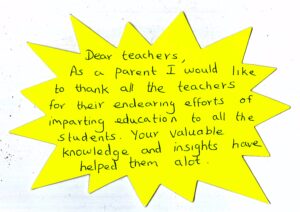 Dear teachers,
As a parent I would like
to thank all the teachers
for their endearing efforts of
imparting education to all the
students. Your valuable
knowledge and insights have
helped them alot.